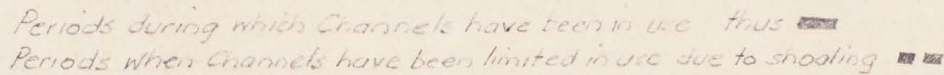 Periods during which Channels have been in use thus
Periods when Channels have been limited in use due to shoaling